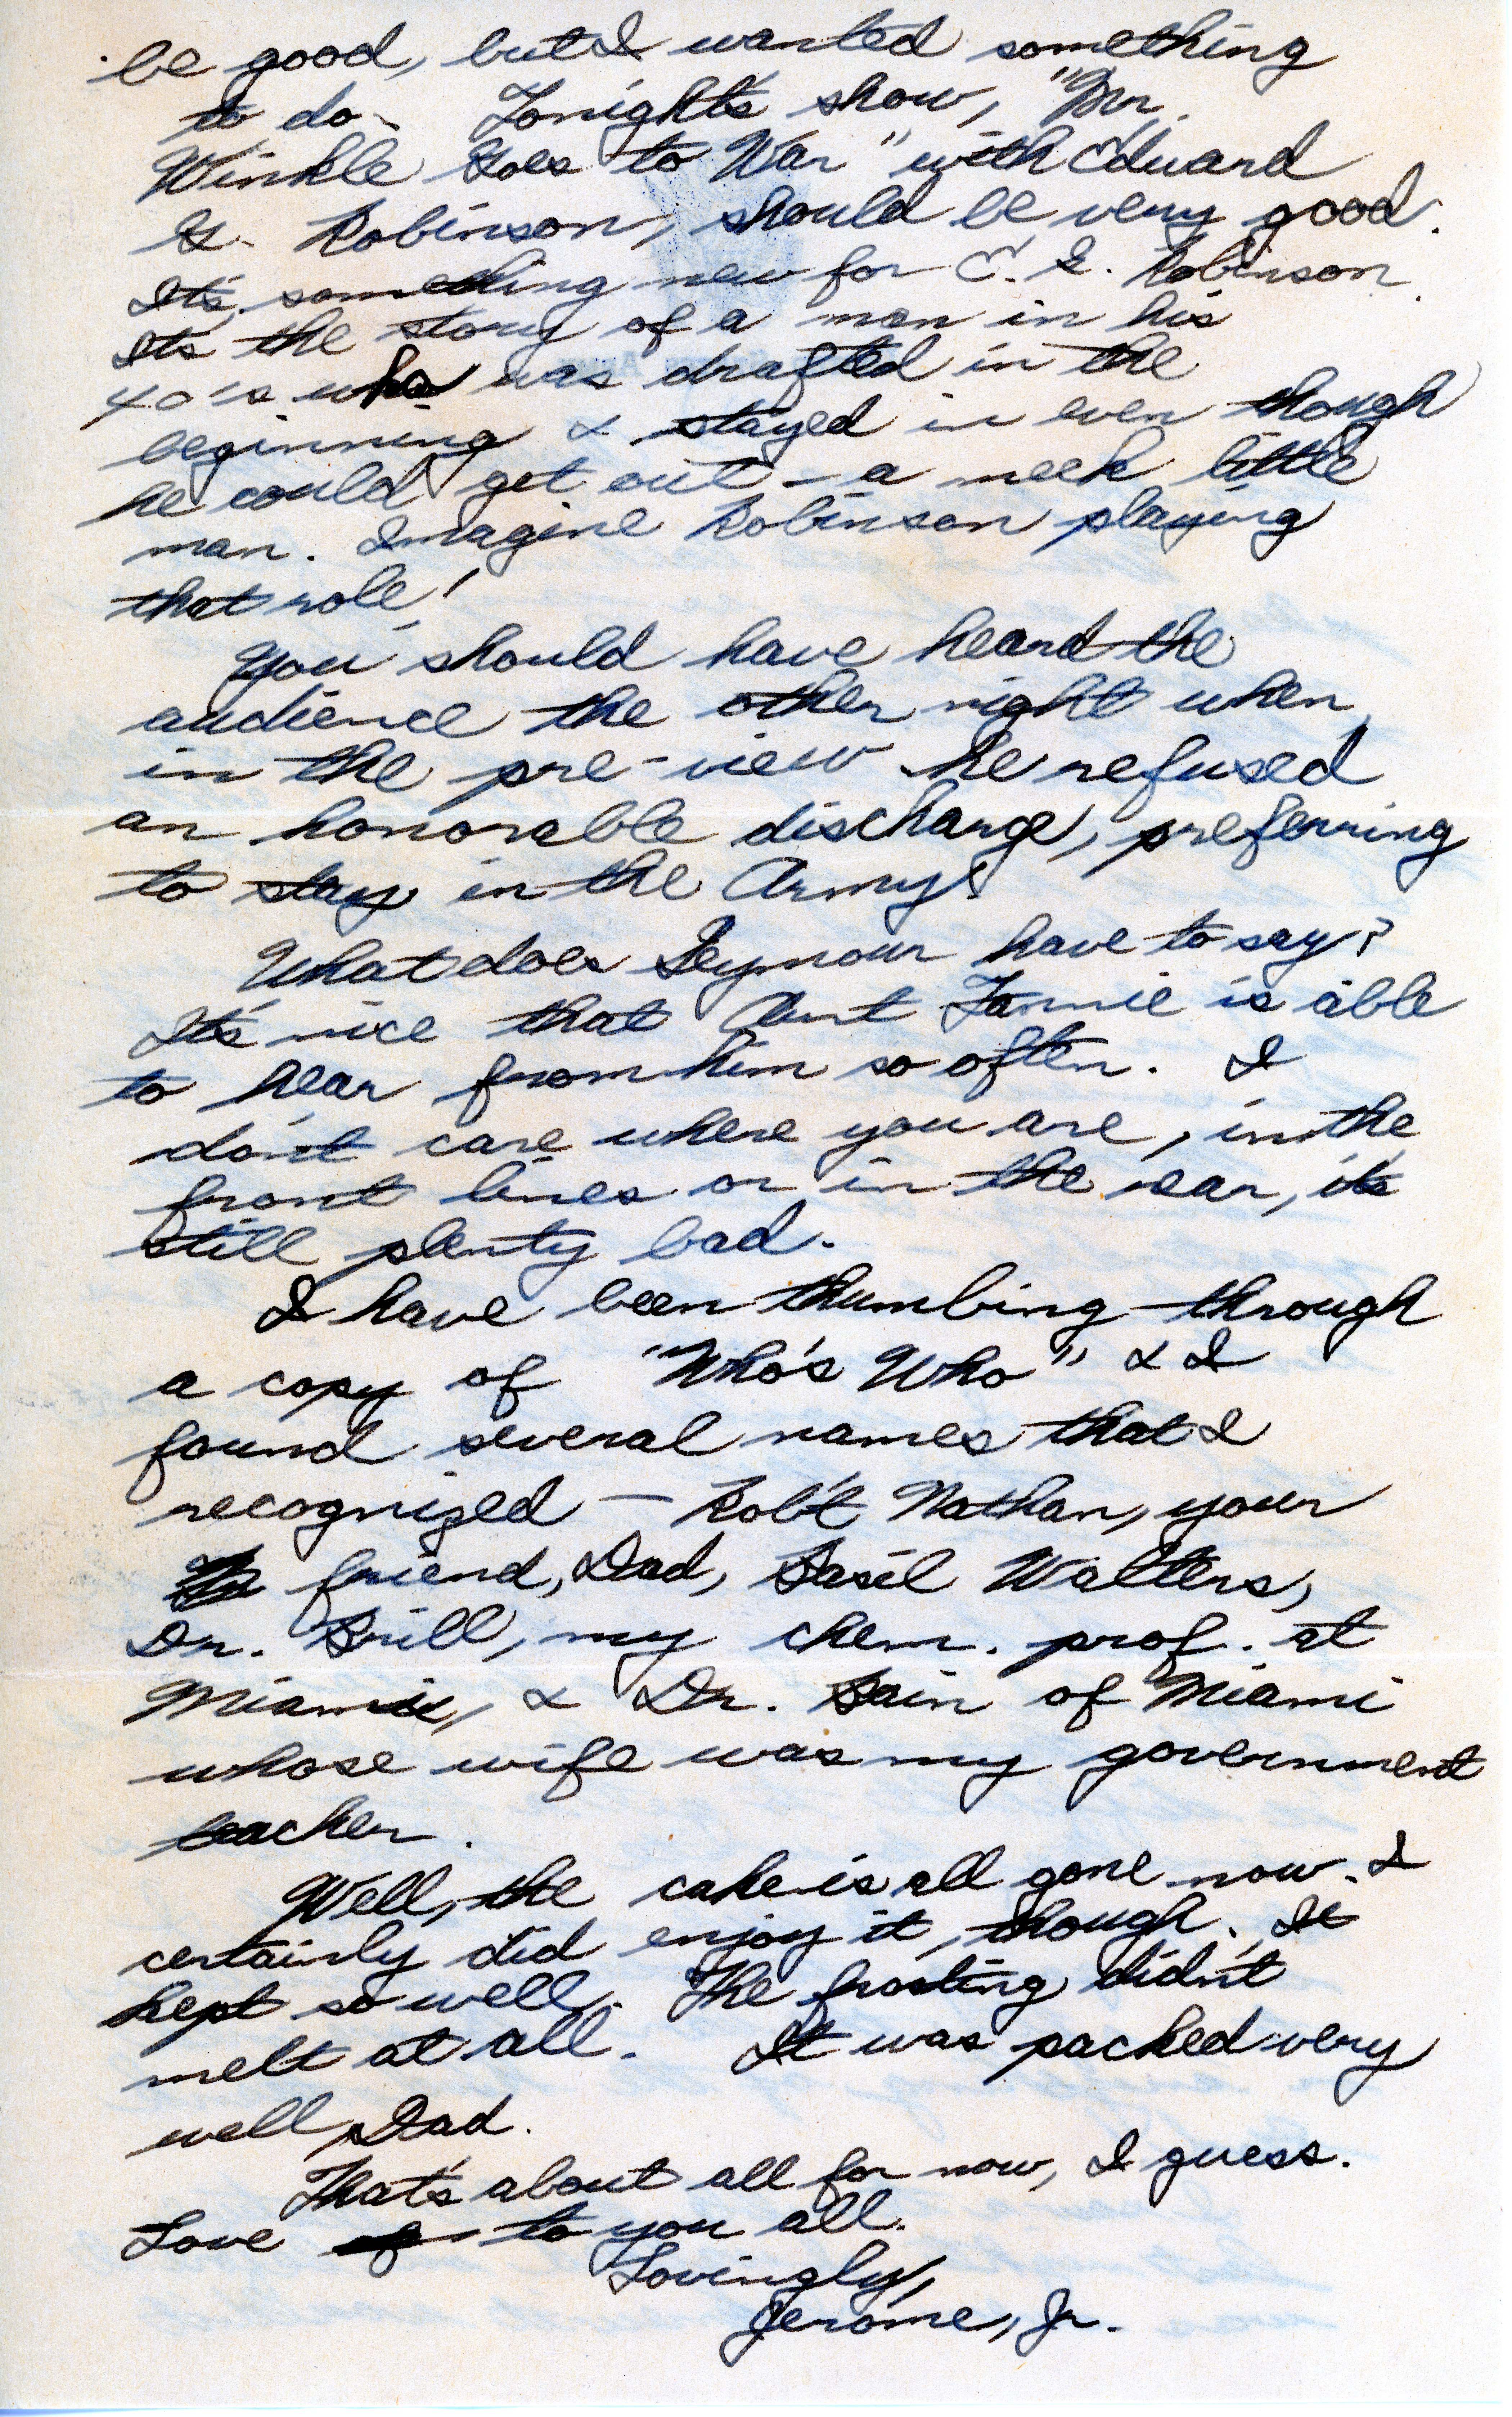 be good, but I wanted something
to do. Tonight's show, "Mr.
Winkle Goes to War" with Edward
G. Robinson, should be very good.
It's something new for E. G. Robinson.
It's the story of a man in his
40's who was drafted in the
beginning & stayed in even though
he could get out - a meek little
man. Imagine Robinson playing
that role!
You should have heard the
audience the other night when
in the pre-view he refused
an honorable discharge, preferring
to stay in the Army!
What does Seymour have to say?
It's nice that Aunt Fannie is able
to hear from him so often. I
don't care where you are, in the
front lines or in the rear, it's
still plenty bad.
I have been thumbing through
a copy of "Who's Who" & I
found several names that I
recognized — Rob't Nathan, your
friend, Dad, Basil Walters,
Dr. Brill, my chem. prof. at
Miami, & Dr. Bain of Miami
whose wife was my government
teacher.
Well, the cake is all gone now. I
certainly did enjoy it, though. It
kept so well. The frosting didn't
melt at all. It was packed very
well, Dad.
That's about all for now, I guess.
Love to you all.
Lovingly,
Jerome, Jr.